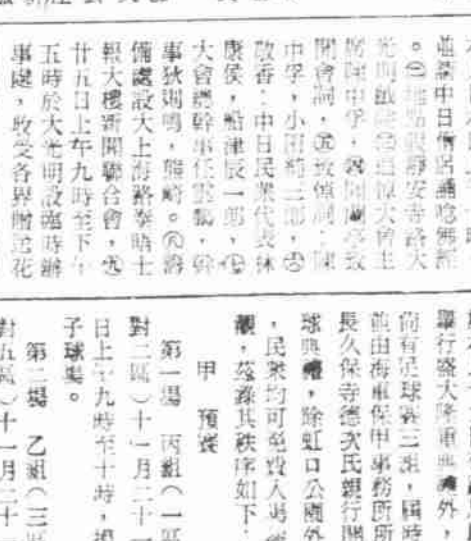 並請中日僧侶誦唸佛經
。㊁地點假靜安寺路大
光明戲院㊂追悼大會主
席陳中孚，㊃開幕辭致
開會詞，㊄致悼詞：陳
中孚，小田 二郎，㊅
致香：中日民衆代表林
康侯，船津辰一郎，㊆
大會總幹事任雲鵬，幹
事狄則鳴，熊崎。㊇籌
備處設大上海路泰晤士
報大樓新聞聯合會，㊈
廿五日上午九時至下午
五時於大光明設臨時辦
事處，收受各界贈送花
舉行盛大隆重典禮外，
尚有足球賽三組，屆時
並由海軍保甲事務所所
長久保寺德次氏親行開
球典禮，除虹口公園外
，民衆均可免費入場參
觀，茲錄其秩序如下：
甲　預賽
第一場　丙組（一區
對二區）十一月二十一
日上午九時至十時，
子球場。
第二場　乙組（三區
對五區）十一月二十